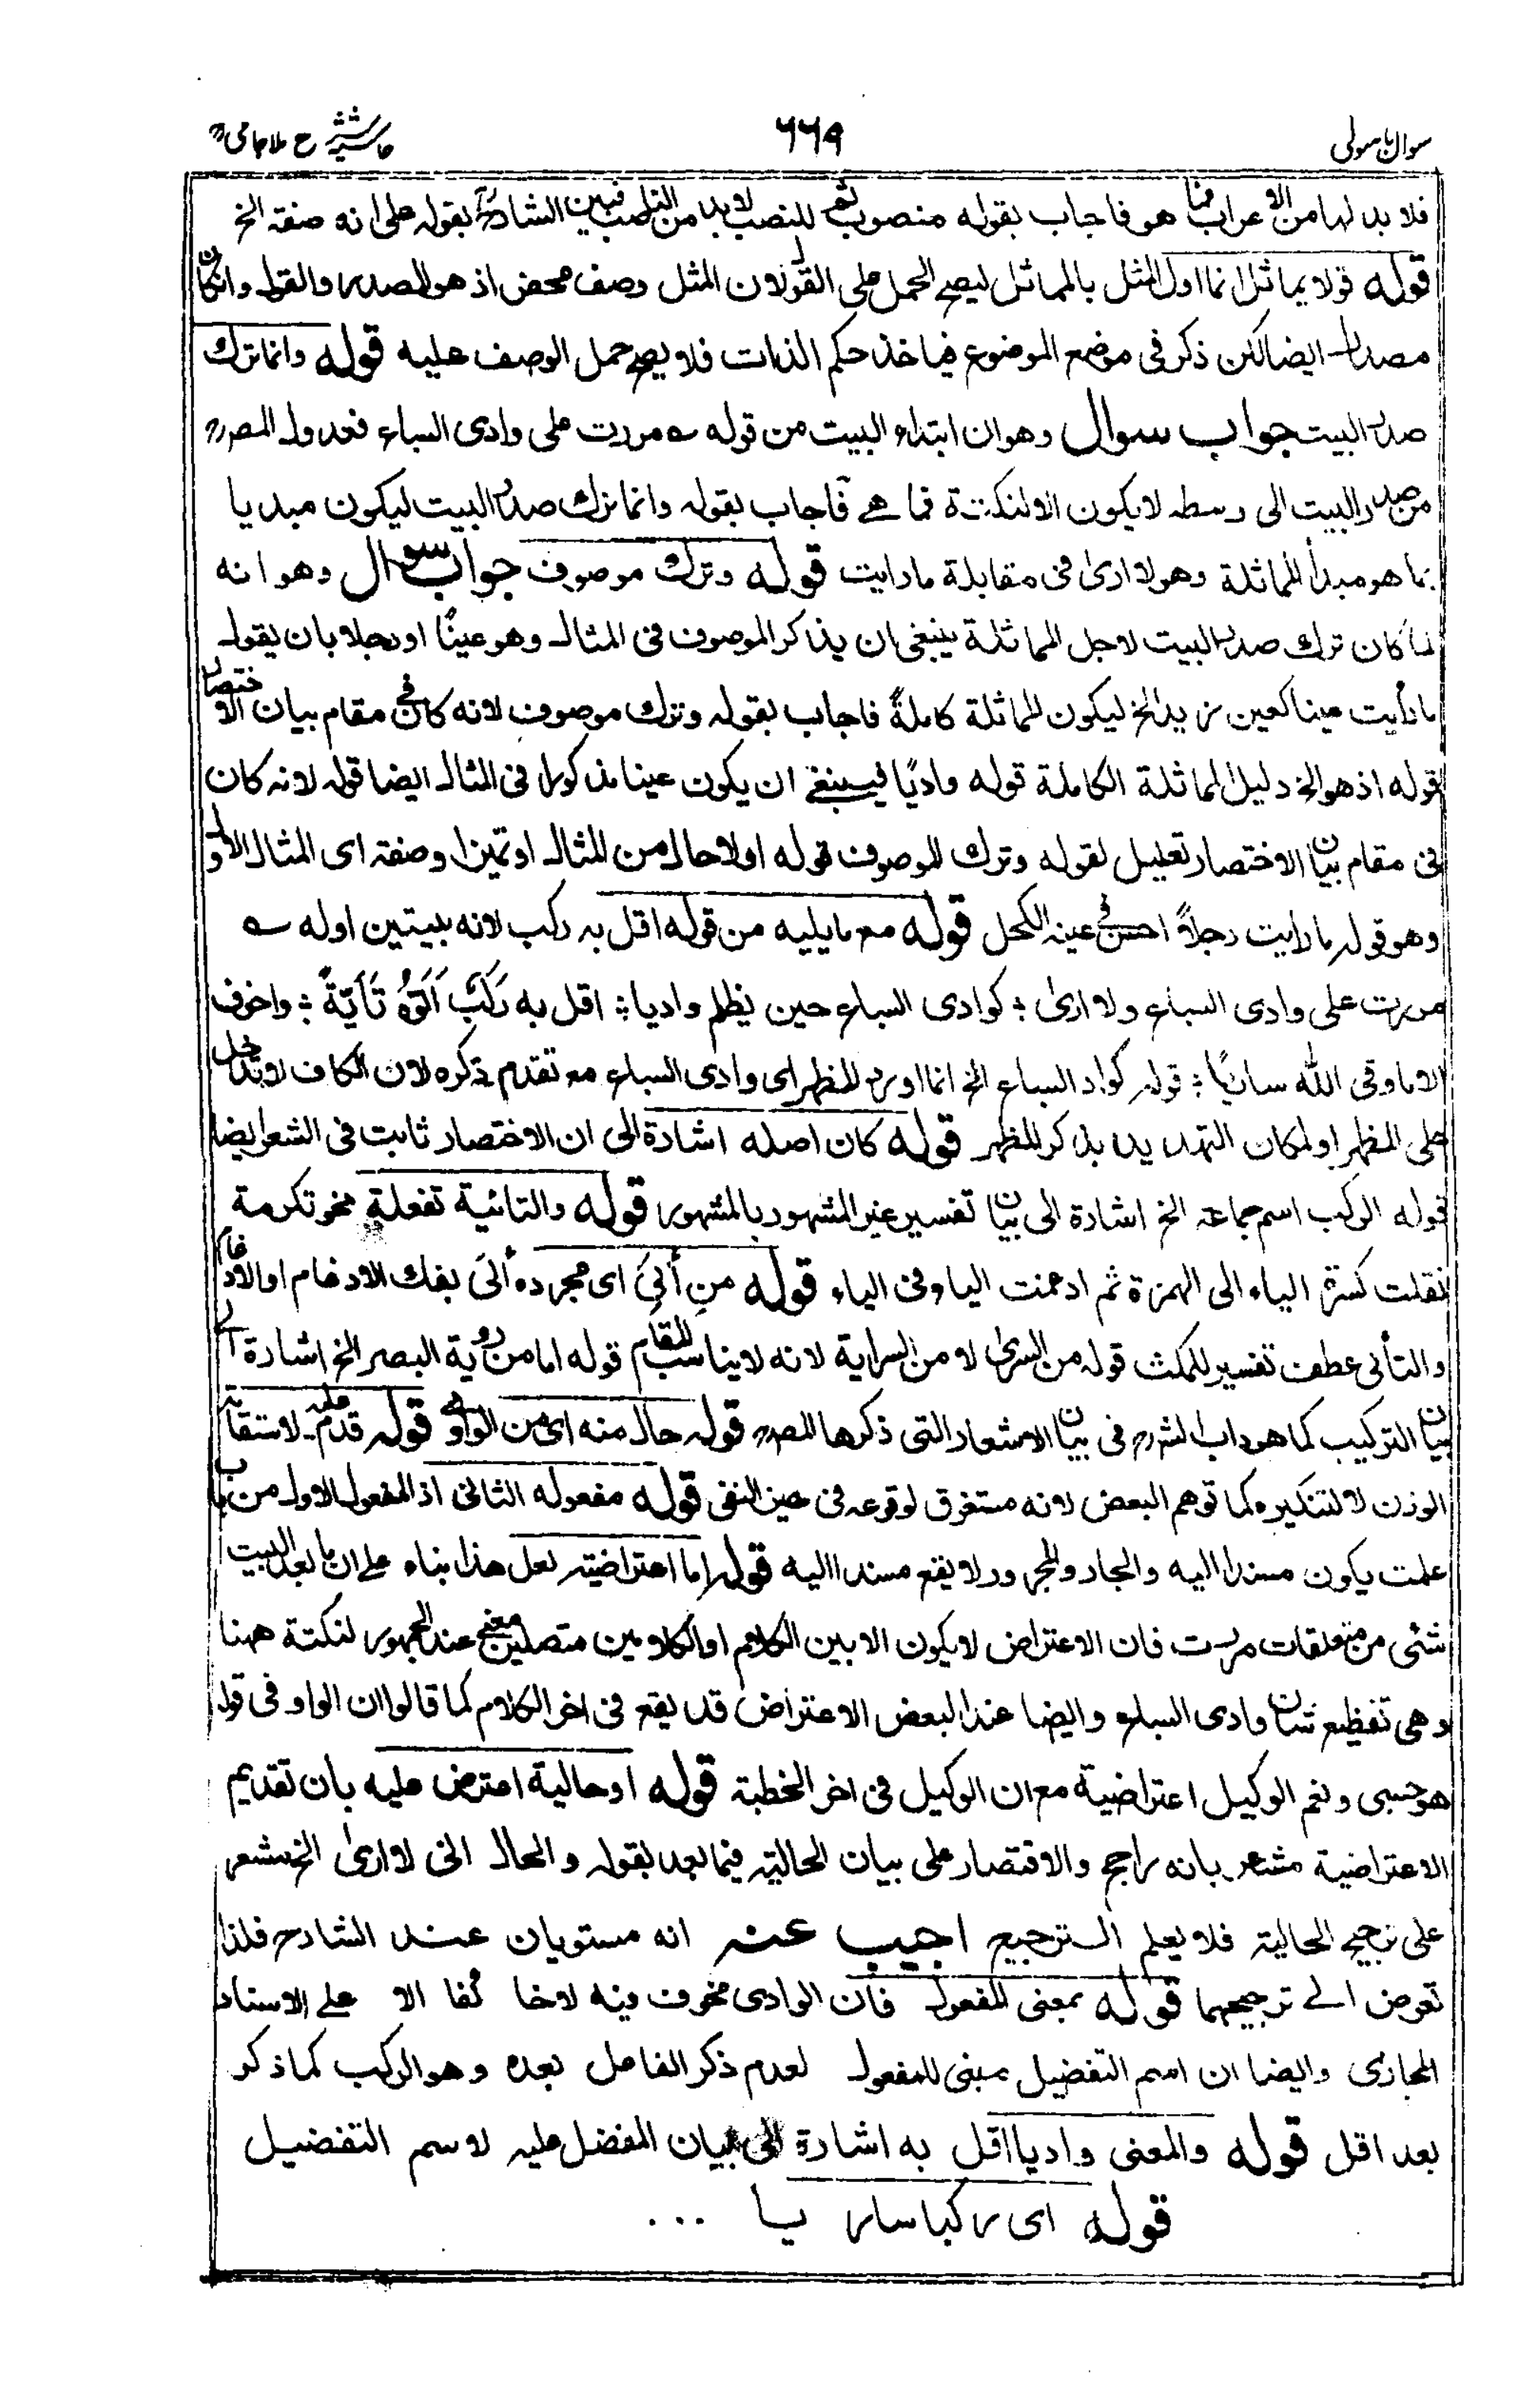 سوال باسولی
۶۶۹
حاشیہ شرح ملا جامی
فلا بد لها من الاعراب فما هو فاجاب بقوله منصوب ثم للنصب لا بد من الناصب فبين الشارح بقوله على انه صفة الخ
قوله قولا يماثل انما اول المثل بالمماثل ليصح الحمل على القول لان المثل وصف محض اذ هو المصدر والقول وان كان
مصدرا ايضا لكن ذكر فى موضع الموضوع فياخذ حكم الذات فلا يصح حمل الوصف عليه قوله وانما ترك
صدر البيت جواب سوال وهو ان ابتداء البيت من قوله مررت على وادى السباع فعدول المصر
من صدر البيت الى وسطه لا يكون الا لنكتة فما هے فاجاب بقوله وانما ترك صدر البيت ليكون مبديا
بما هو مبدأ المماثلة وهو لا ارى فى مقابلة ما رايت قوله وترك موصوف جواب سوال وهو انه
لما كان ترك صدر البيت لاجل المماثلة ينبغى ان يذكر الموصوف فى المثال وهو عينًا او رجلا بان يقول
ما رأيت عينا كعين زيد الخ ليكون المماثلة كاملةً فاجاب بقوله وترك موصوف لانه كان فى مقام بيان الاختصار
قوله اذ هو الخ دليل المماثلة الكاملة قوله واديًا فينبغى ان يكون عينا مذكورا فى المثال ايضا قوله لانه كان
فى مقام بيان الاختصار تعليل لقوله وترك الموصوف قوله اولا حال من المثال او تميزا وصفة اى المثال الاول
وهو قوله ما رايت رجلاً احسن فى عينه الكحل قوله مع ما يليه من قوله اقل به ركب لانه ببيتين اوله
مررت على وادى السباع ولا ارى : كوادى السباع حين يظلم واديا : اقل به رَكْبٌ اَتَوْهُ تَأيّةً : واخوف
الا ما وقى الله ساريًا : قوله كواد السباع الخ انما اورد المظهر اى وادى السباع مع تقدم ذكره لان الكاف لا تدخل
على المظهر او لمكان التهديد بذكر المظهر قوله كان اصله اشارة الى ان الاختصار ثابت فى الشعر ايضا
قوله الركب اسم جماعة الخ اشارة الى بيان تفسير غير المشهور بالمشهور قوله والتائية تفعلة نحو تكرمة
نقلت كسرة الياء الى الهمزة ثم ادغمت الياء فى الياء قوله من أَيّىَ اى مجرده أيىَ بفك الادغام او الادغام
والتأنى عطف تفسير للمكث قوله من السرى لا من السراية لانه لا يناسب المقام قوله اما من روية البصر الخ اشارة الى
بيان التركيب كما هو داب الشرح فى بيان الاشعار التى ذكرها المصر قوله حال منه اى من الوادى قوله قدم عليه لاستقامة
الوزن لا لتنكيره كما توهم البعض لانه مستغرق لوقوعه فى حيز النفى قوله مفعوله الثانى اذ المفعول الاول من باب
علمت يكون مسندا اليه والجار والمجرور لا يقع مسندا اليه قوله اما اعتراضية لعل هذا بناء على ان ما بعد البيت
شئى من متعلقات مررت فان الاعتراض لا يكون الا بين الكلام او الكلامين متصلين معنى عند الجمهور لنكتة ههنا
وهى تفظيع شان وادى السباع وايضا عند البعض الاعتراض قد يقع فى اخر الكلام كما قالوا ان الواو فى قوله
هو حسبى ونعم الوكيل اعتراضية مع ان الوكيل فى اخر الخطبة قوله او حالية اعترض عليه بان تقديم
الاعتراضية مشعر بانه راجح والاقتصار على بيان الحالية فيما بعد بقوله والحال انى لا ارى الخ مشعر
على ترجيح الحالية فلا يعلم الترجيح اجيب عنه انه مستويان عند الشارح فلذا
تعرض الے ترجيحهما قوله بمعنى المفعول فان الوادى مخوف فيه لا خائفا الا على الاسناد
المجازى وايضا ان اسم التفضيل مبنى للمفعول لعدم ذكر الفاعل بعده وهو الركب كما ذكر
بعد اقل قوله والمعنى واديا اقل به اشارة الى بيان المفضل عليه لاسم التفضيل
قوله اى ركبا ساريا ...